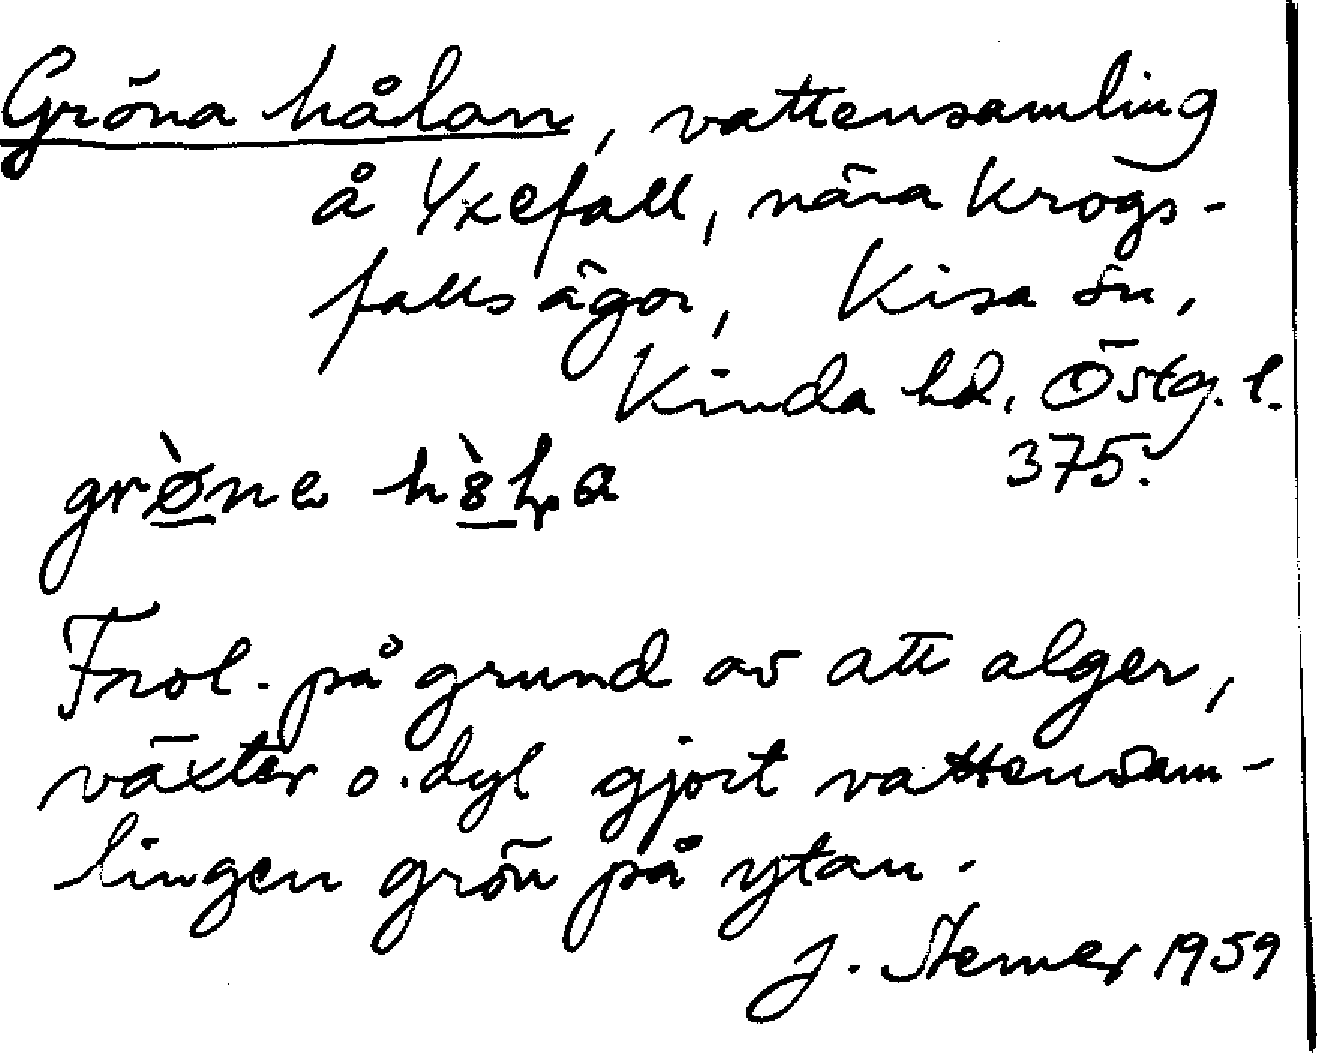 Gröna hålan, vattensamling
å Yxefall, nära Krogs-
fallsägor, Kisa sn,
Kinda hd, Östg. l.
375.
grø̀ne hὸ̀la
Trol. på grund av att alger,
växter o. dyl gjort vattensam-
lingen grön på ytan.
J. Sterner 1959